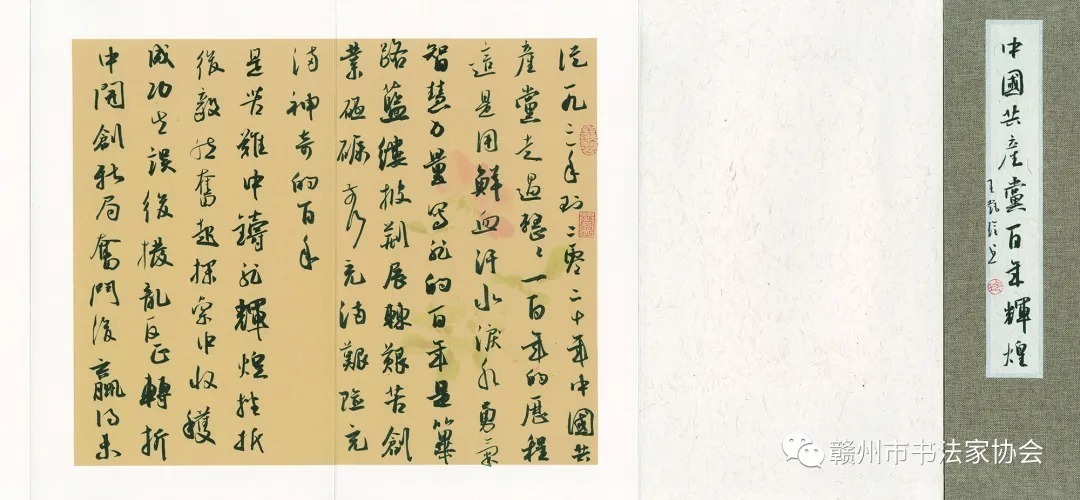 中國共產黨百年輝煌
從一九二一年到二零二十年中國共
產黨走過整整一百年的歷程
這是用鮮血汗水淚水勇氣
智慧力量寫就的百年是篳
路藍縷披荊展棘艱苦創
業砥礪前行充滿艱險充
滿神奇的百年
是苦難中鑄就輝煌挫折
後毅然奮起探索中收穫
成功失誤後撥亂反正轉折
中開創新局奮鬥後贏得未
赣州市书法家协会